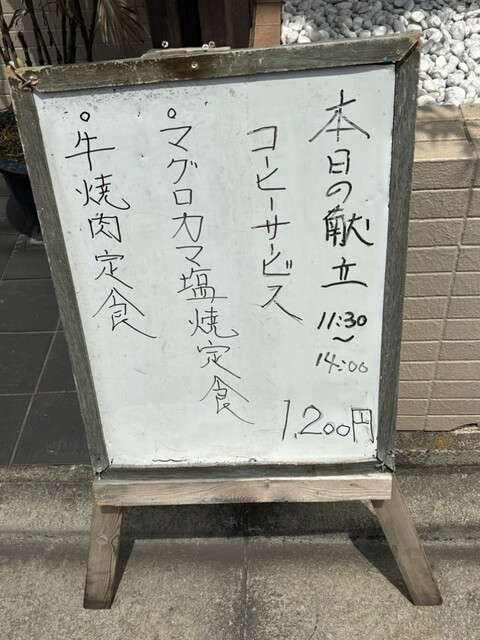 本日の献立
11:30
〜
14:00
1,200円
コーヒーサービス
°マグロカマ塩焼定食
°牛焼肉定食